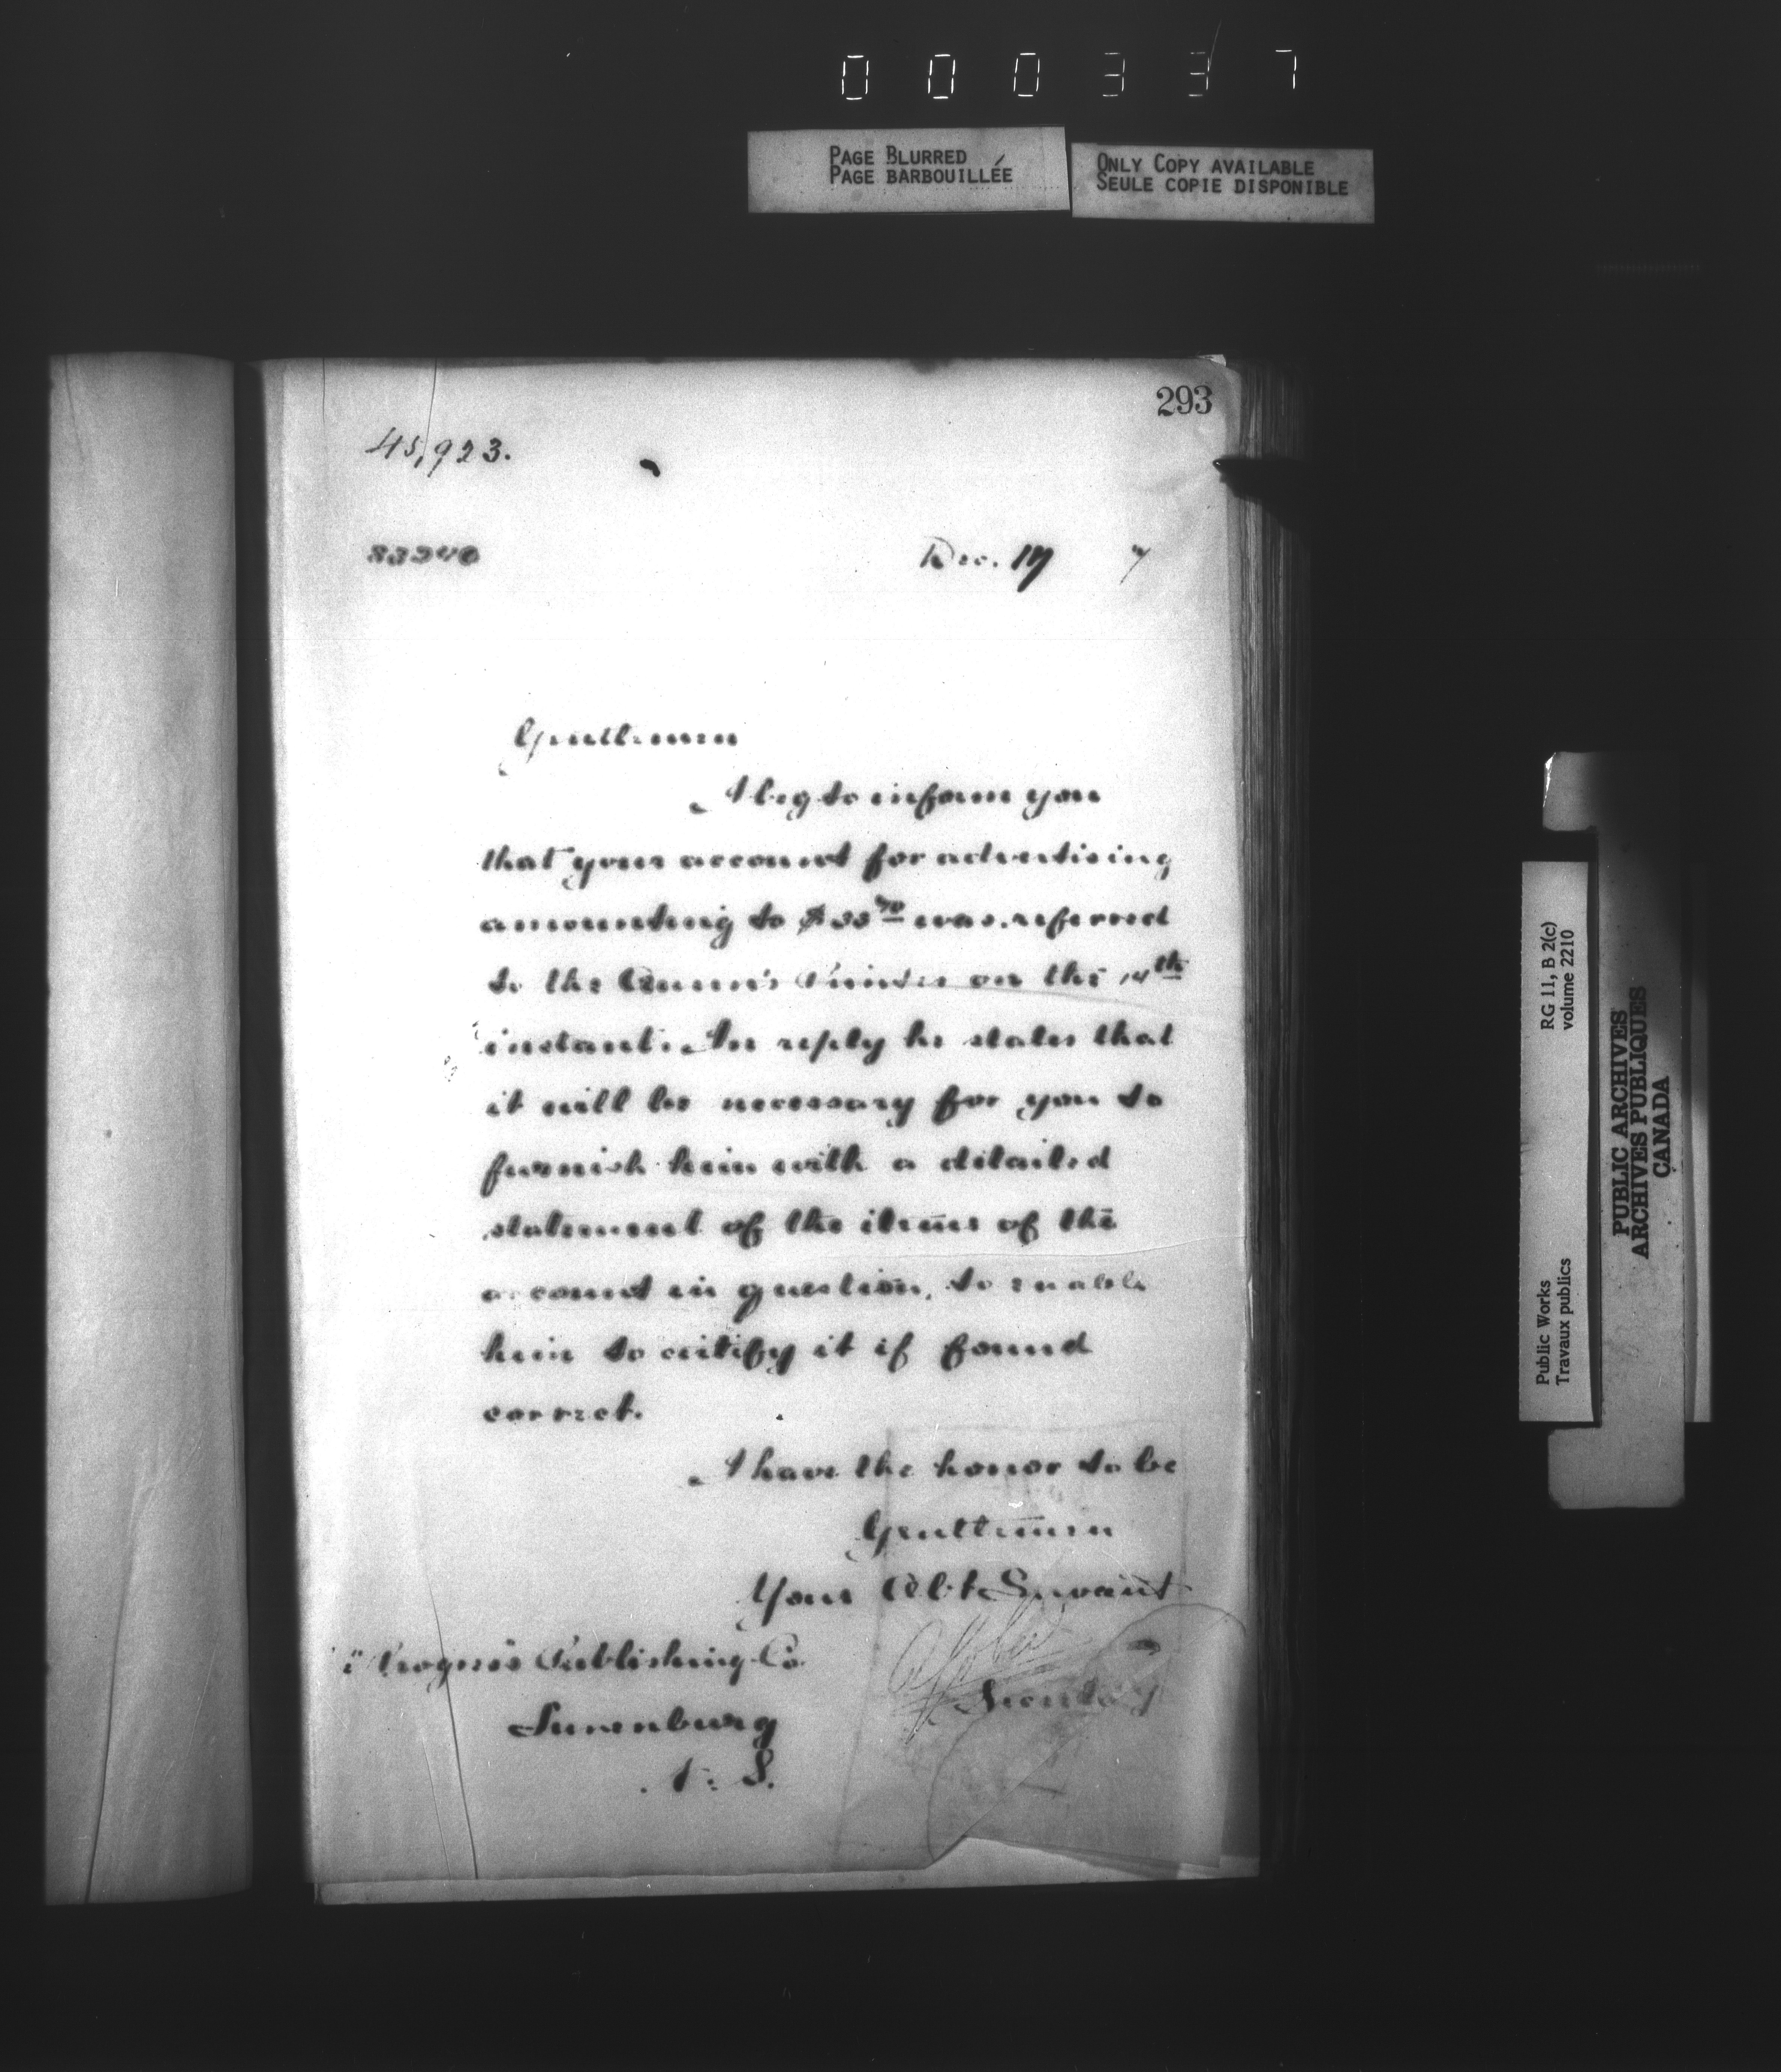 000337
PAGE BLURRED
PAGE BARBOUILLÉE
ONLY COPY AVAILABLE
SEULE COPIE DISPONIBLE
293
45,923.
83240
Dec. 17 7
Gentlemen
I beg to inform you
that your account for advertising
amounting to $33 was referred
to the Queen's Printer on the 14th
instant. In reply he states that
it will be necessary for you to
furnish him with a detailed
statement of the items of the
account in question, to enable
him to certify it if found
correct.
I have the honor to be
Gentlemen
Your Obt Servant
Secretary
Progress Publishing Co.
Lunenburg
N. S.
Public Works
Travaux publics
RG 11, B 2(c)
volume 2210
PUBLIC ARCHIVES
ARCHIVES PUBLIQUES
CANADA